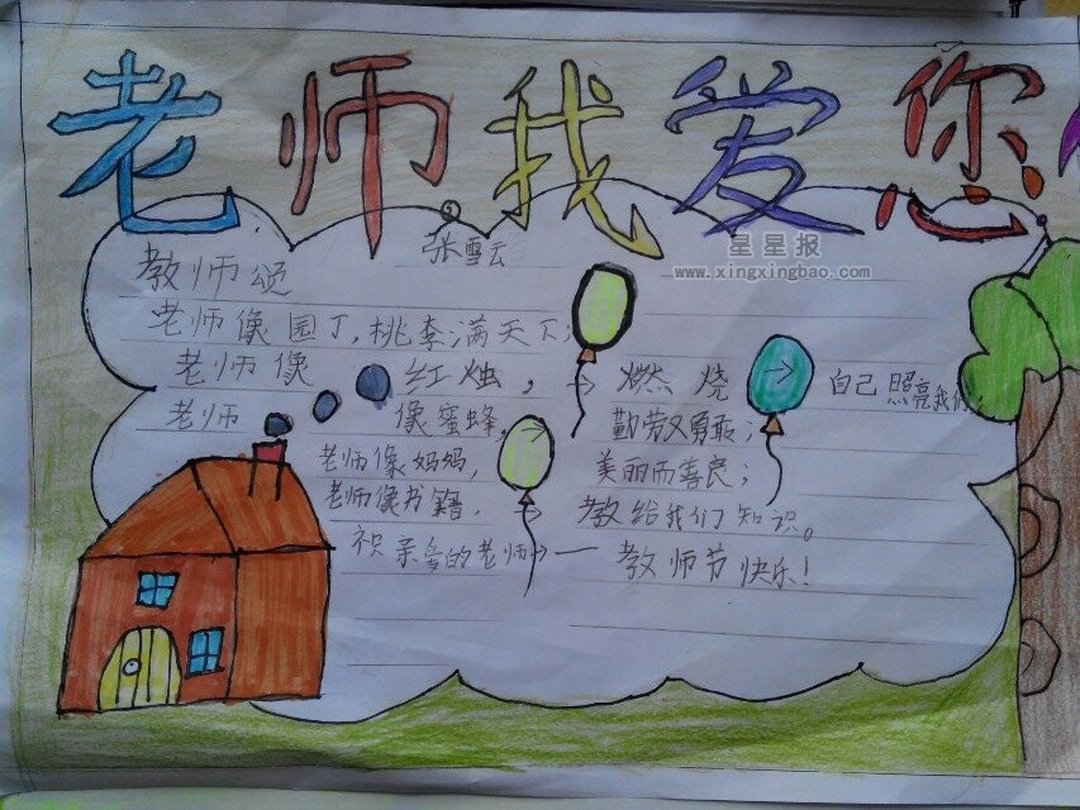 老师我爱您
星星报
www.xingxingbao.com
教师颂 张雪云
老师像园丁,桃李满天下;
老师像红烛,→燃烧→自己照亮我们;
老师像蜜蜂,→勤劳又勇敢;
老师像妈妈,美丽而善良;
老师像书籍.→教给我们知识。
祝亲爱的老师→一教师节快乐!